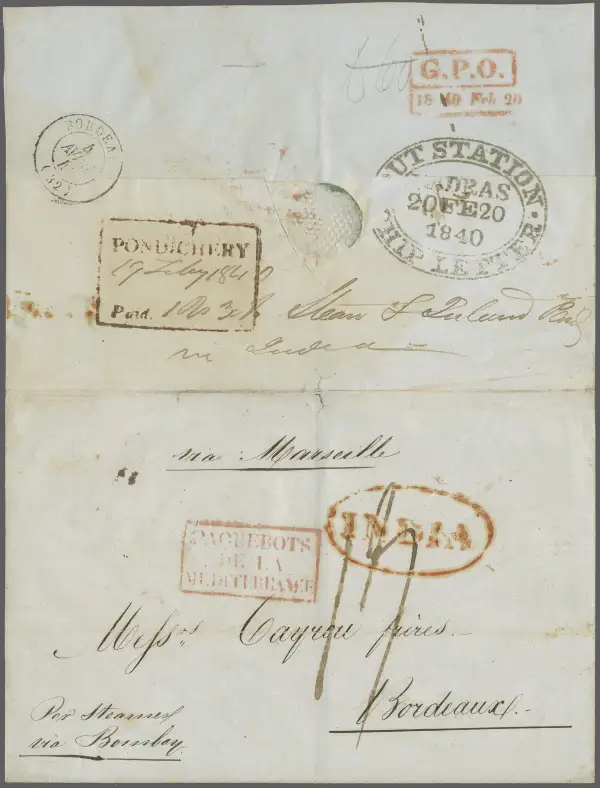 G.P.O.
1840 Feb 20
BORDEA
(32)
OUT STATION
MADRAS
20 FE 20
1840
SHIP LETTER
PONDICHERY
19 Feby 1840
Paid. 1 Rs 3 Steam & Inland
in India
via Marseille
INDIA
PAQUEBOTS
DE LA
MEDITERRANEE
Messrs. Tayrou frères.
Bordeaux.
Per Steamer
via Bombay